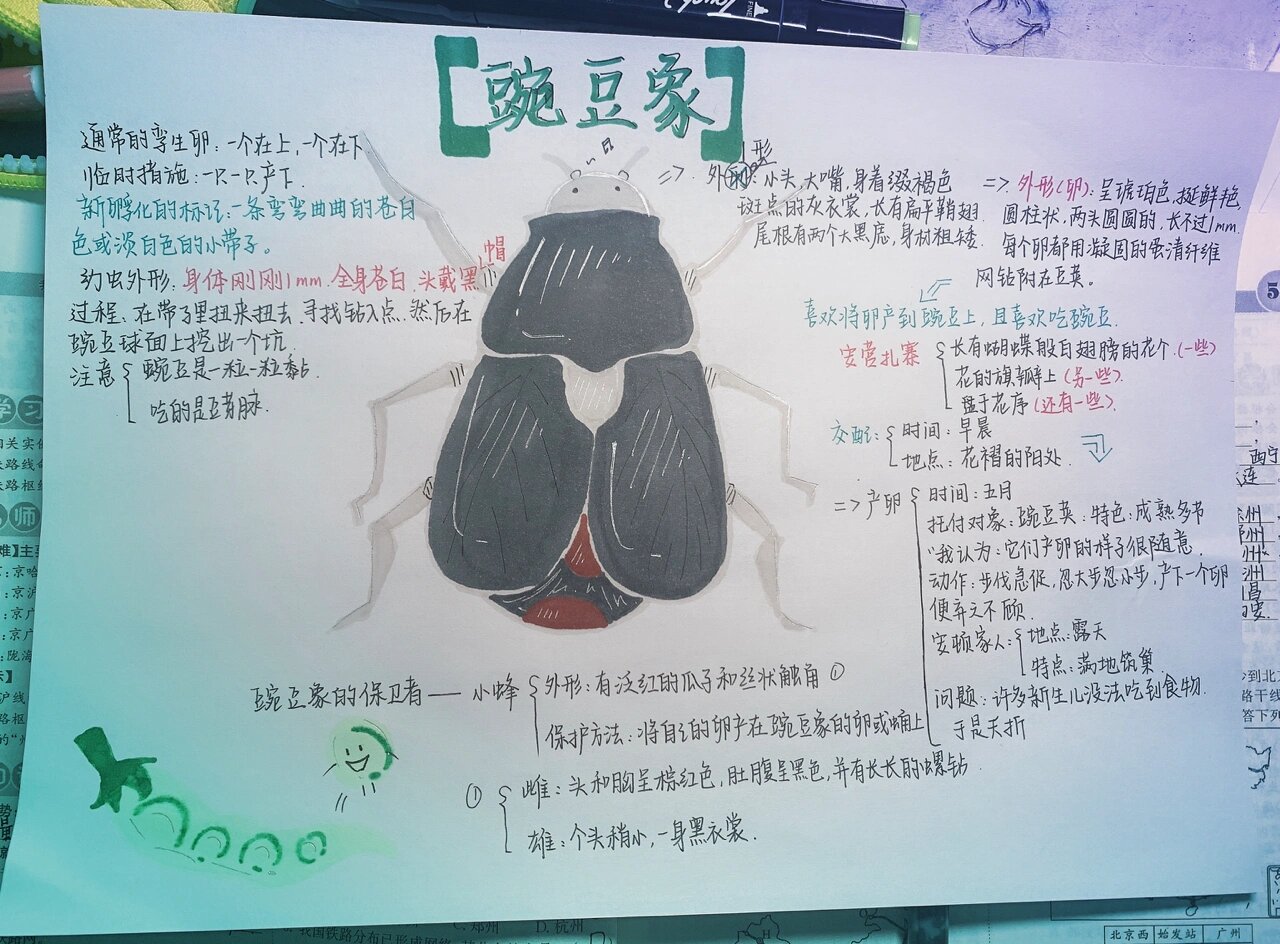 【豌豆象】
通常的孪生卵：一个在上，一个在下
临时措施：一只一只产下.
新孵化的标记：一条弯弯曲曲的苍白
色或淡白色的小带子。
幼虫外形：身体刚刚1mm.全身苍白.头戴黑帽
过程、在带子里扭来扭去.寻找钻入点.然后在
豌豆球面上挖出一个坑.
注意
豌豆是一粒一粒黏.
吃的是豆荚脉.
=> 外形：小头，大嘴，身着缀褐色
斑点的灰衣裳，长有扁平鞘翅.
尾根有两个大黑底，身材粗矮.
=> 外形(卵)：呈琥珀色，挺鲜艳，
圆柱状，两头圆圆的，长不过1mm.
每个卵都用凝固的蛋清纤维
网钻附在豆荚。
喜欢将卵产到豌豆上，且喜欢吃豌豆.
安营扎寨
长有蝴蝶般白翅膀的花个.(一些)
花的旗瓣上(另一些).
盘于花序(还有一些).
交配：
时间：早晨
地点：花褶的阳处.
=> 产卵
时间：五月
托付对象：豌豆荚：特色：成熟多节
"我认为：它们产卵的样子很随意.
动作：步伐急促，忽大步忽小步，产下一个卵
便弃之不顾.
安顿家人：
地点：露天
特点：满地筑巢.
问题：许多新生儿没法吃到食物.
于是夭折
豌豆象的保卫者——小蜂
外形：有泛红的瓜子和丝状触角①
保护方法：将自己的卵产在豌豆象的卵或蛹上
①
雌：头和胸呈棕红色，肚腹呈黑色，并有长长的螺钻.
雄：个头稍小，一身黑衣裳.
学习
师
C.郑州
D.杭州
北京西 始发站 广州